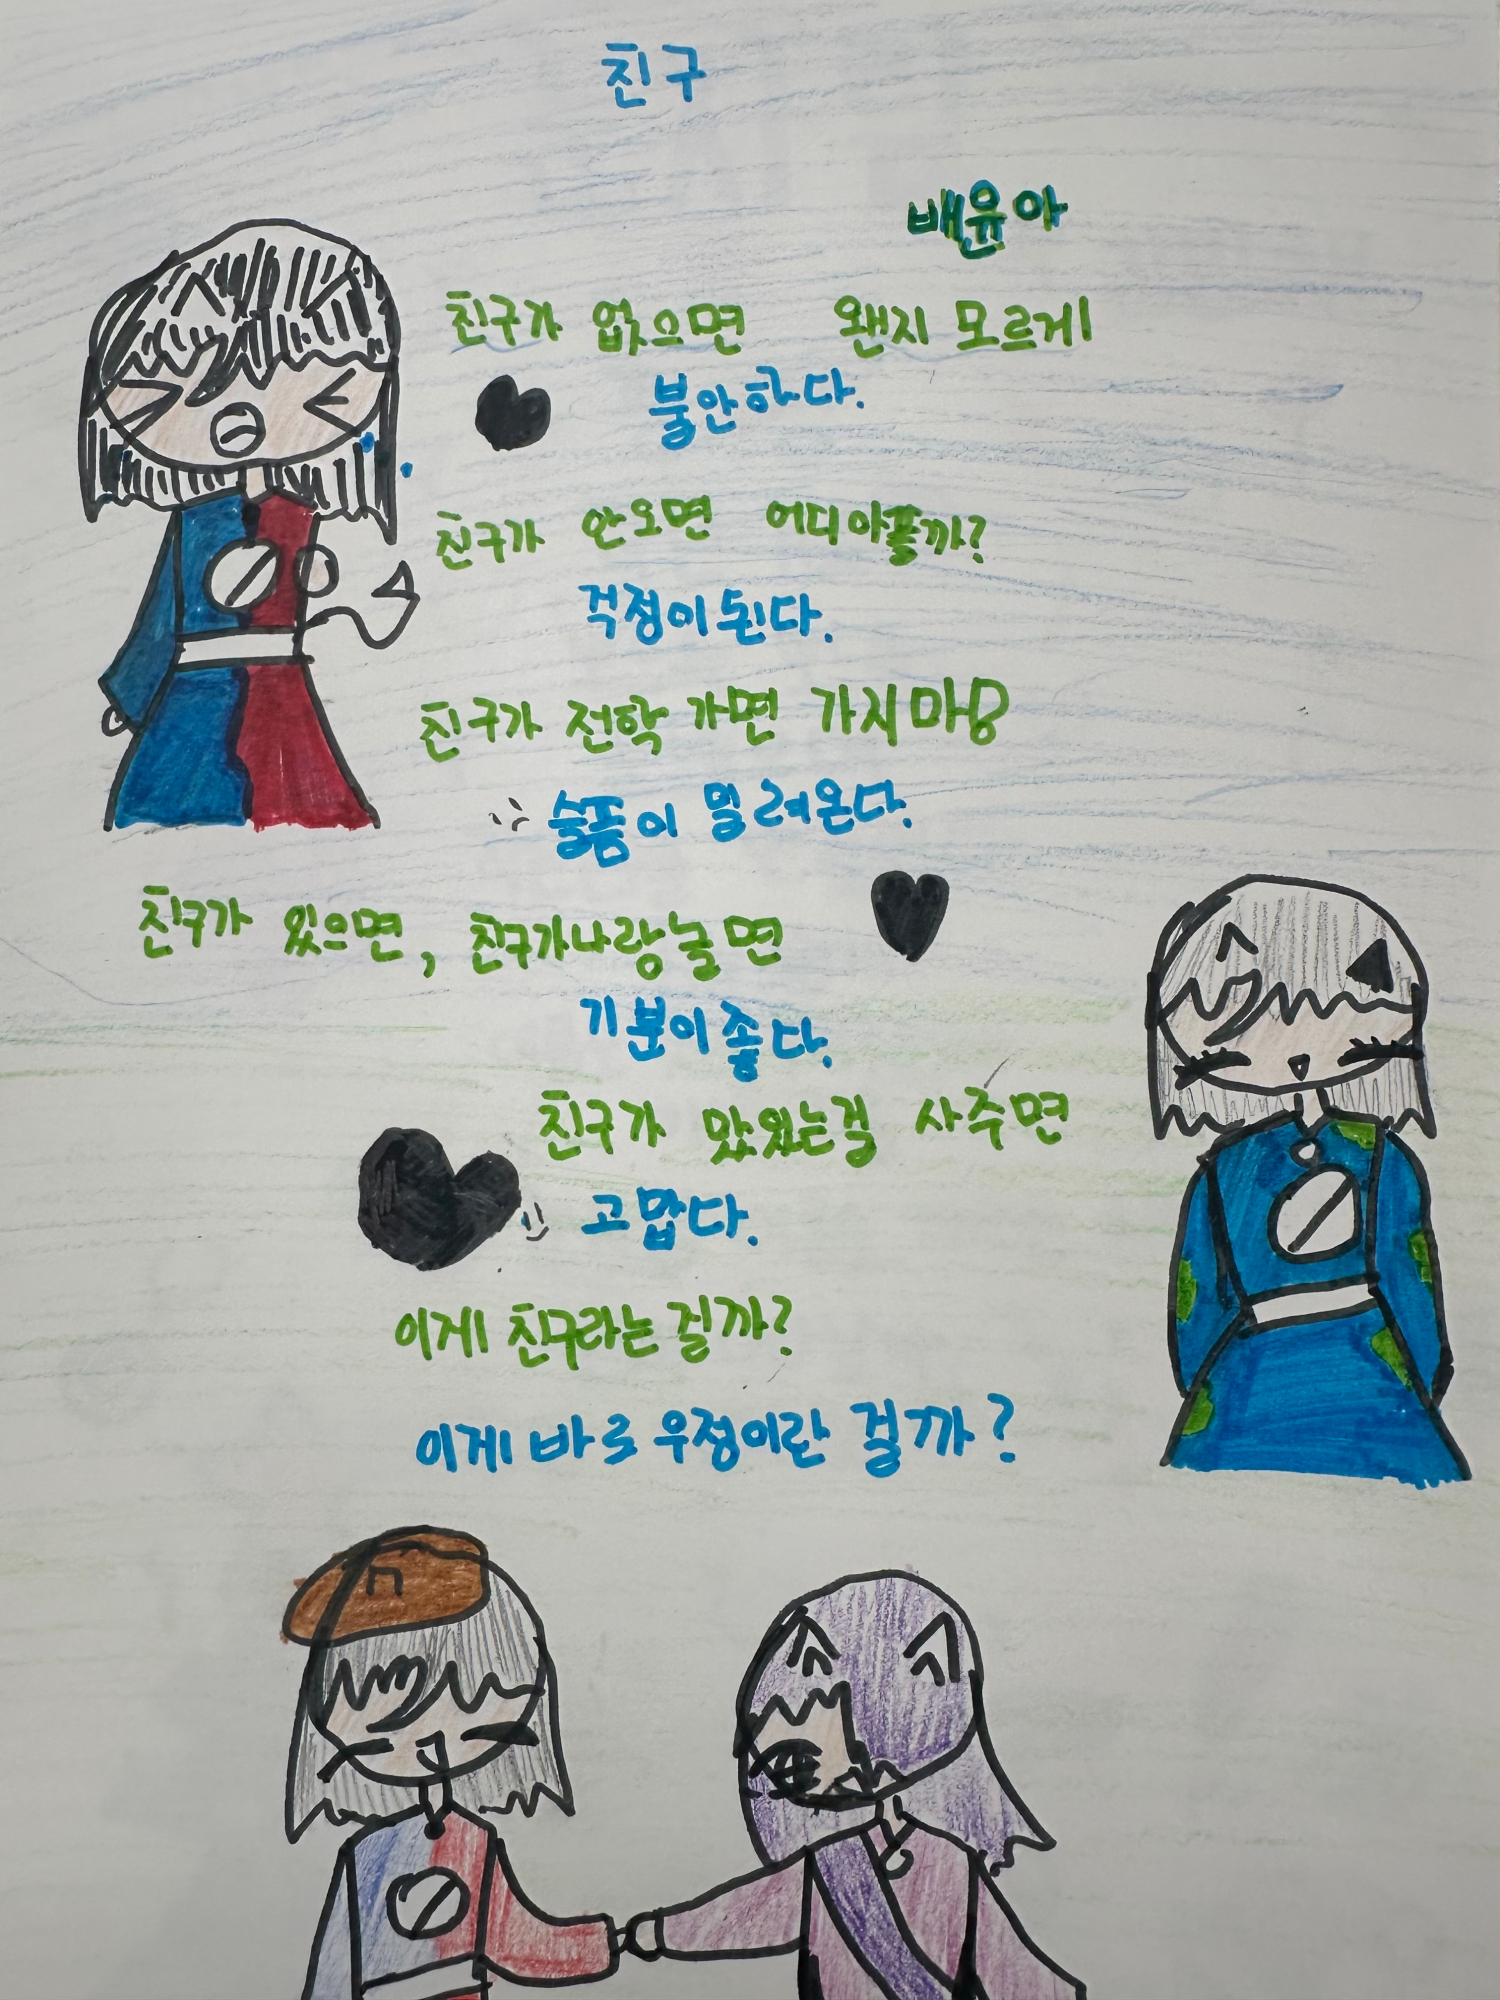 친구
배윤아
친구가 없으면 왠지 모르게
불안하다.
친구가 안오면 어디아플까?
걱정이 된다.
친구가 전학 가면 가지마!
슬픔이 밀려온다.
친구가 있으면, 친구가나랑놀면
기분이좋다.
친구가 맜있는걸 사주면
고맙다.
이게 친구라는걸까?
이게 바로 우정이란 걸까?